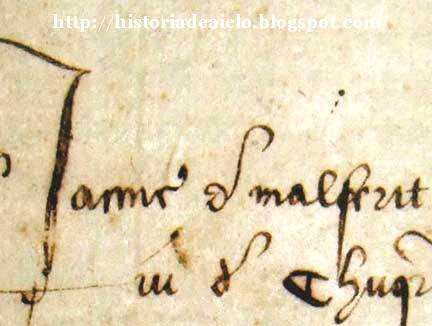 http://historiadeaielo.blogspot.com
Jacme d malferit
iii d